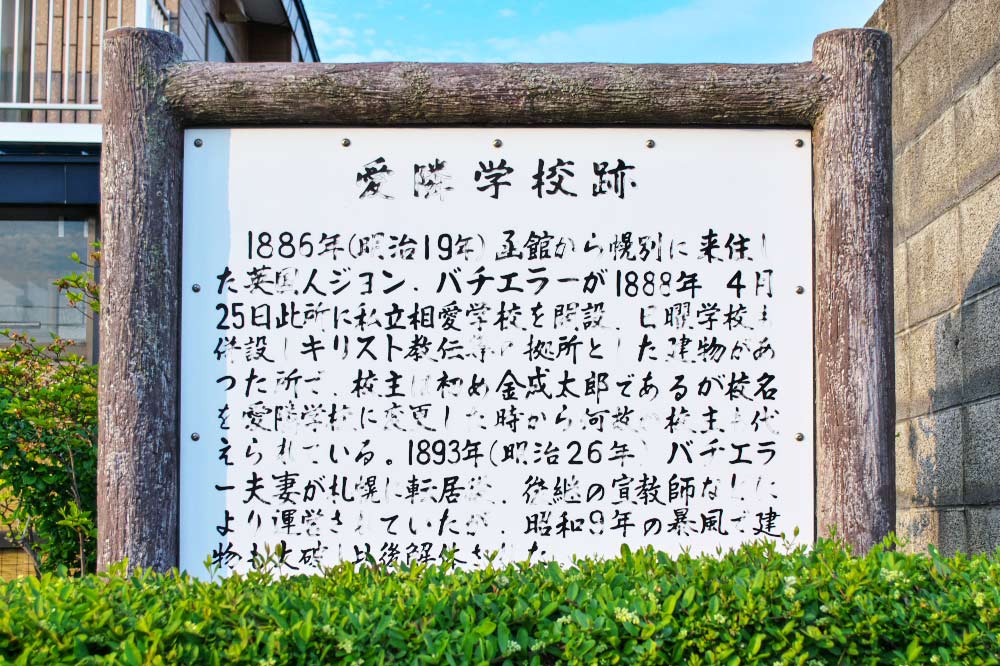 愛隣学校跡
1886年(明治19年)函館から幌別に来住し
た英国人ジョン、バチエラーが1888年 4月
25日此所に私立相愛学校を開設、日曜学校も
併設しキリスト教伝導の拠所とした建物があ
った所で、校主は初め金成太郎であるが校名
を愛隣学校に変更した時から何故か校主も代
えられている。1893年(明治26年)バチエラ
ー夫妻が札幌に転居後、後継の宣教師などに
より運営されていたが、昭和9年の暴風で建
物も大破し以後解体された